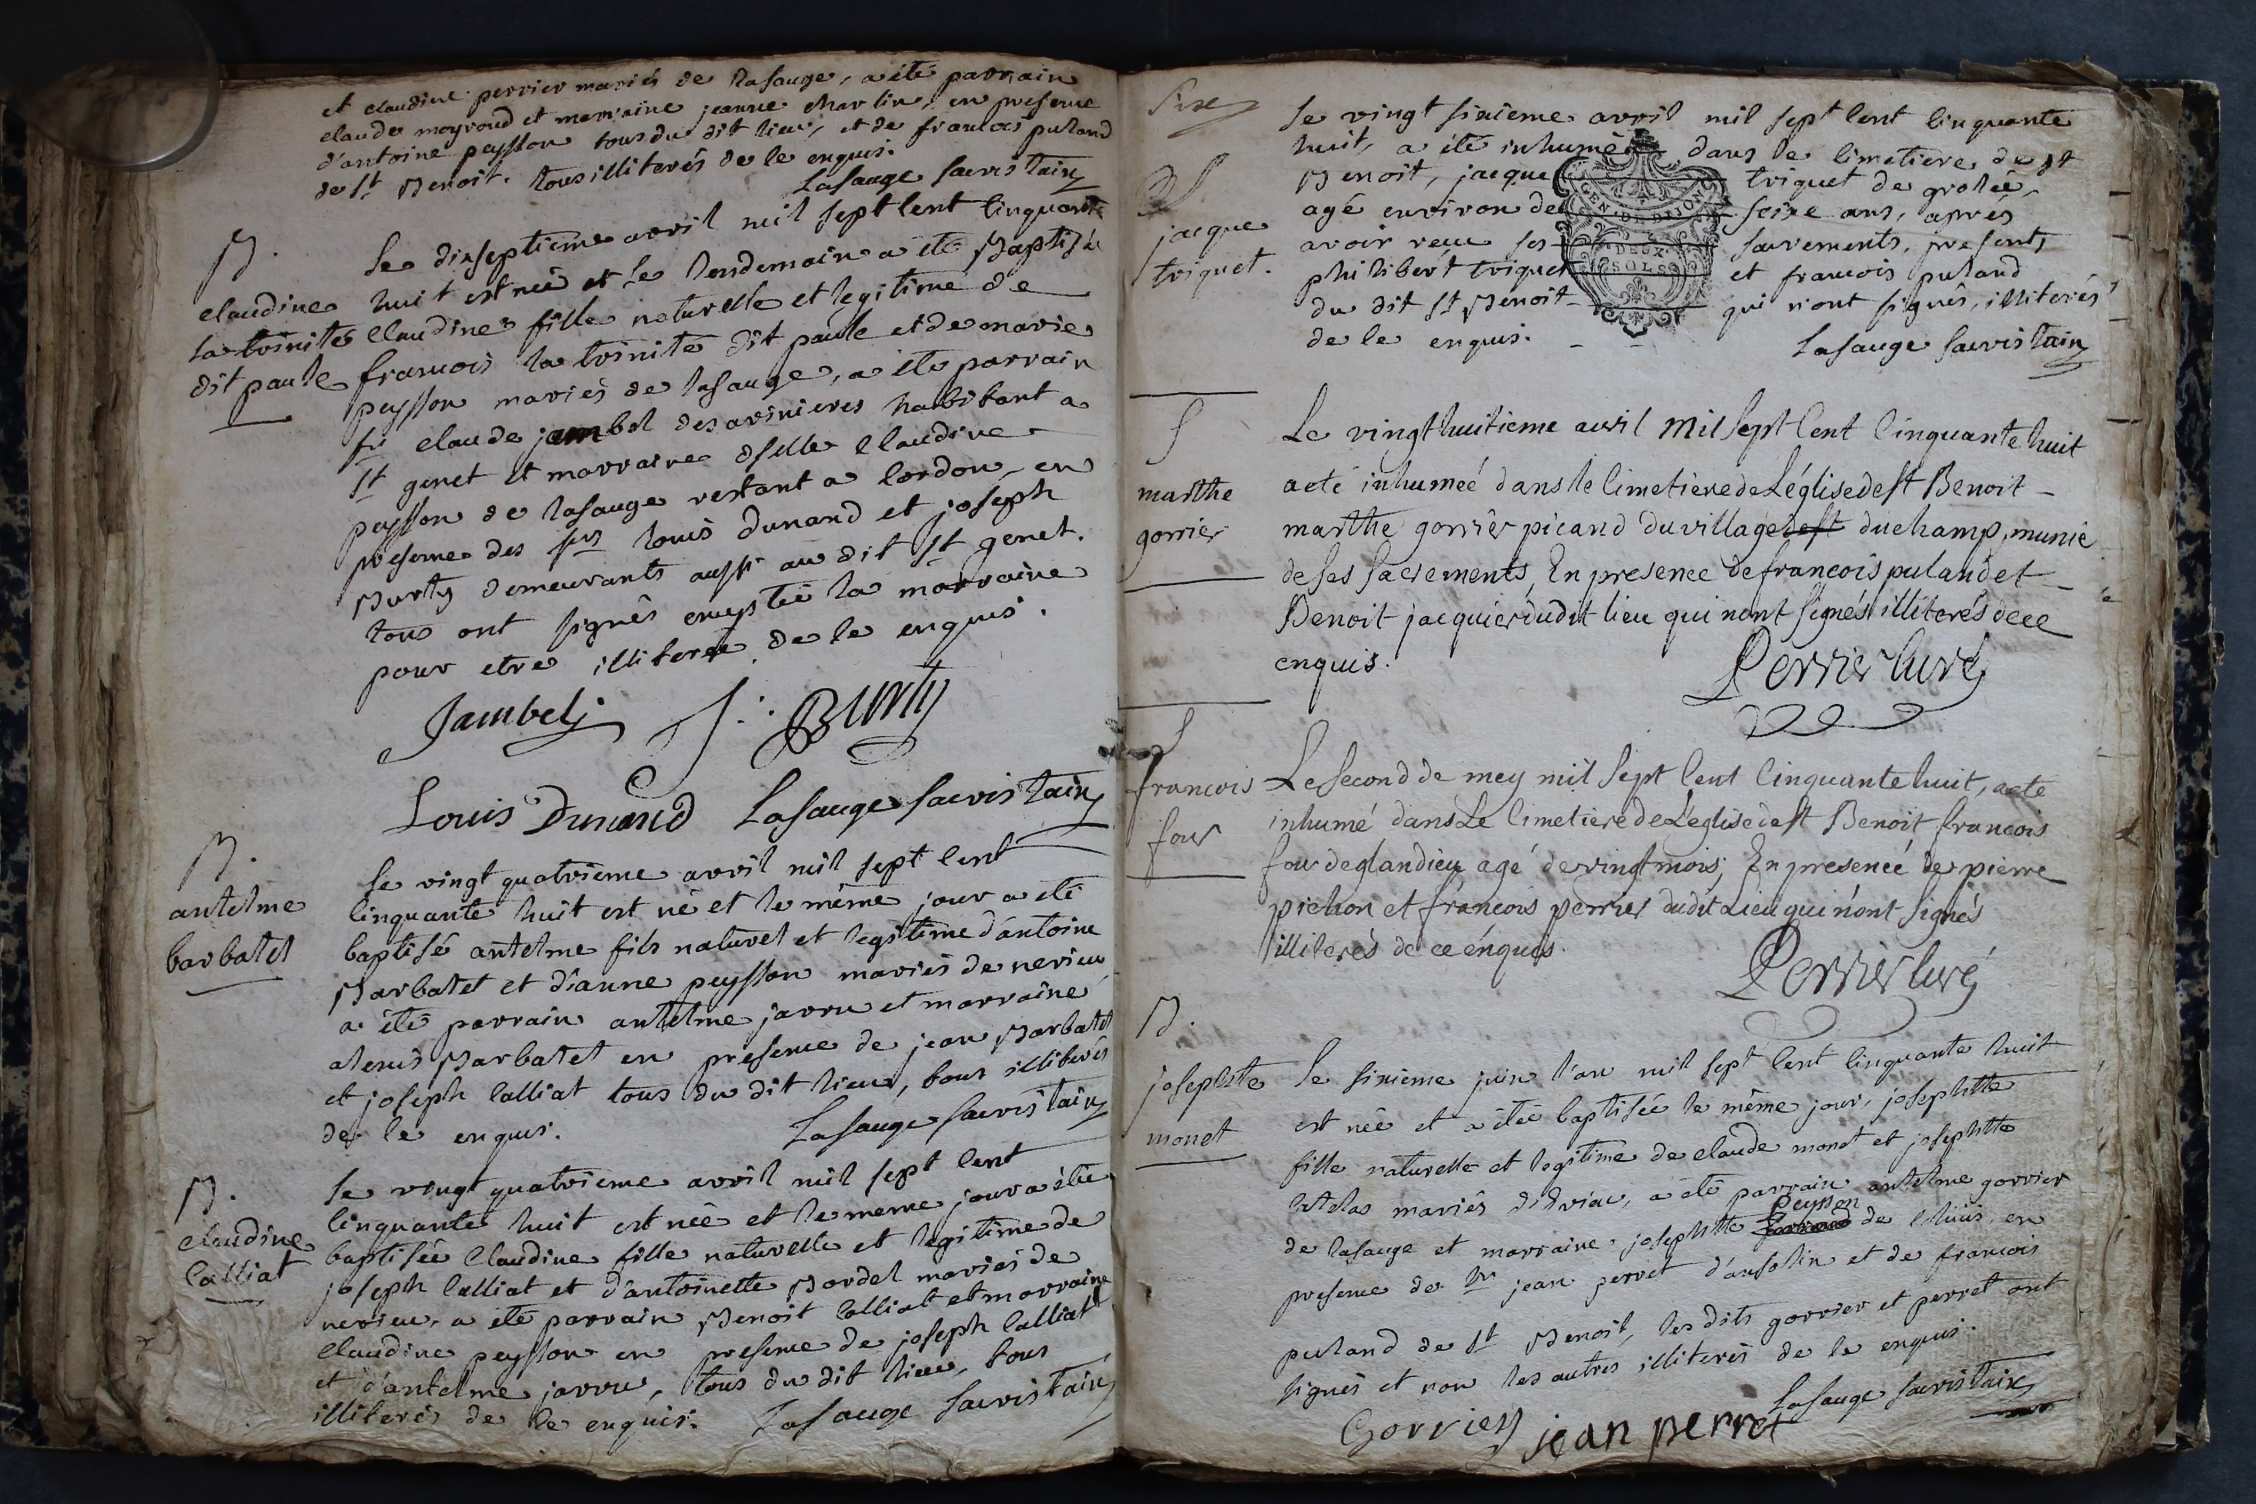 et claudine perrier mariés de lasauge, a été parrain
claude moyroud et marraine jeanne charlin, en presence
d'antoine peysson tous du dit lieu, et de francois puland
de st Benoit. tous illiterés de le enquis.
Lasauge sacristain
B.
claudine
la trinité
dit paule
Le dixseptieme avril mil sept cent cinquante
huit est née et le lendemain a été Baptisée
claudine fille naturelle et legitime de
francois la trinité dit paule et de marie
peysson mariés de lasauge, a été parrain
sr claude jambel des avinieres habitant a
st genet et marraine dselle claudine
peysson de lasauge restant a cordon, en
presence des srs louis dunand et joseph
Burty demeurants aussi au dit st genet.
tous ont signés exceptée la marraine
pour etre illiterée de le enquis.
Jambel J: Burty
Louis Dunand Lasauge sacristain
B.
antelme
barbatel
Le vingt quatrieme avril mil sept cent
cinquante huit est né et le même jour a été
baptisé antelme fils naturel et legitime d'antoine
Barbatet et d'anne peysson mariés de nerieu
a été parrain antelme jarru et marraine
Barbatet en presence de jean Barbatet
et joseph calliat tous du dit lieu, tous illiterés
de le enquis. Lasauge sacristain
B.
claudine
calliat
Le vingt quatrieme avril mil sept cent
cinquante huit est née et le meme jour a été
baptisée claudine fille naturelle et legitime de
joseph calliat et d'antoinette Bordel mariés de
nerieu, a été parrain Benoit calliat et marraine
claudine peysson en presence de joseph calliat
et d'antelme jarru, tous du dit lieu, tous
illiterés de le enquis. Lasauge sacristain
Sixe
S
jacque
triquet.
Le vingt sixieme avril mil sept cent cinquante
huit, a été inhumé dans le cimetiere de st
Benoit, jacque triquet de grolée,
agé environ de seize ans, aprés
avoir reçu ses sacrements, presents
philibert triquet et francois puland
du dit st Benoit qui n'ont signés, illiterés
de le enquis.
GEN. DE DIJON
DEUX
SOLS
Lasauge sacristain
S
marthe
gorrier
Le vingthuitieme avril mil sept cent cinquante huit
a eté inhumeé dans le cimetiere de L'église de st Benoit
marthe gorrier picand du village dest du champ, munie
de ses sacrements, En presence de francois puland et
Benoit jacquier dudit lieu qui nont signés illiterés de ce
enquis.
Perrier curé
S
francois
four
Le second de mey mil sept cent cinquante huit, a eté
inhumé dans Le cimetiere de L'eglise de st Benoit francois
four de glandieu agé de vingt mois, En presencé de pierre
pichon et francois perrier dudit Lieu qui n'ont signés
illiterés de ce énquis.
Perrier curé
B.
josephte
monet
Le sixieme juin l'an mil sept cent cinquante huit
est née et a été baptisée le même jour, josephtte
fille naturelle et legitime de claude monet et josephtte
mariés a été parrain antelme gorrier
de lasauge et marraine josephtte peysson de Lhuis, en
presence de jean perret d'ansolin et de francois
puland de st Benoit, les dits gorrier et perret ont
signés et non les autres illiterés de le enquis.
Lasauge sacristain
Gorrier jean perret